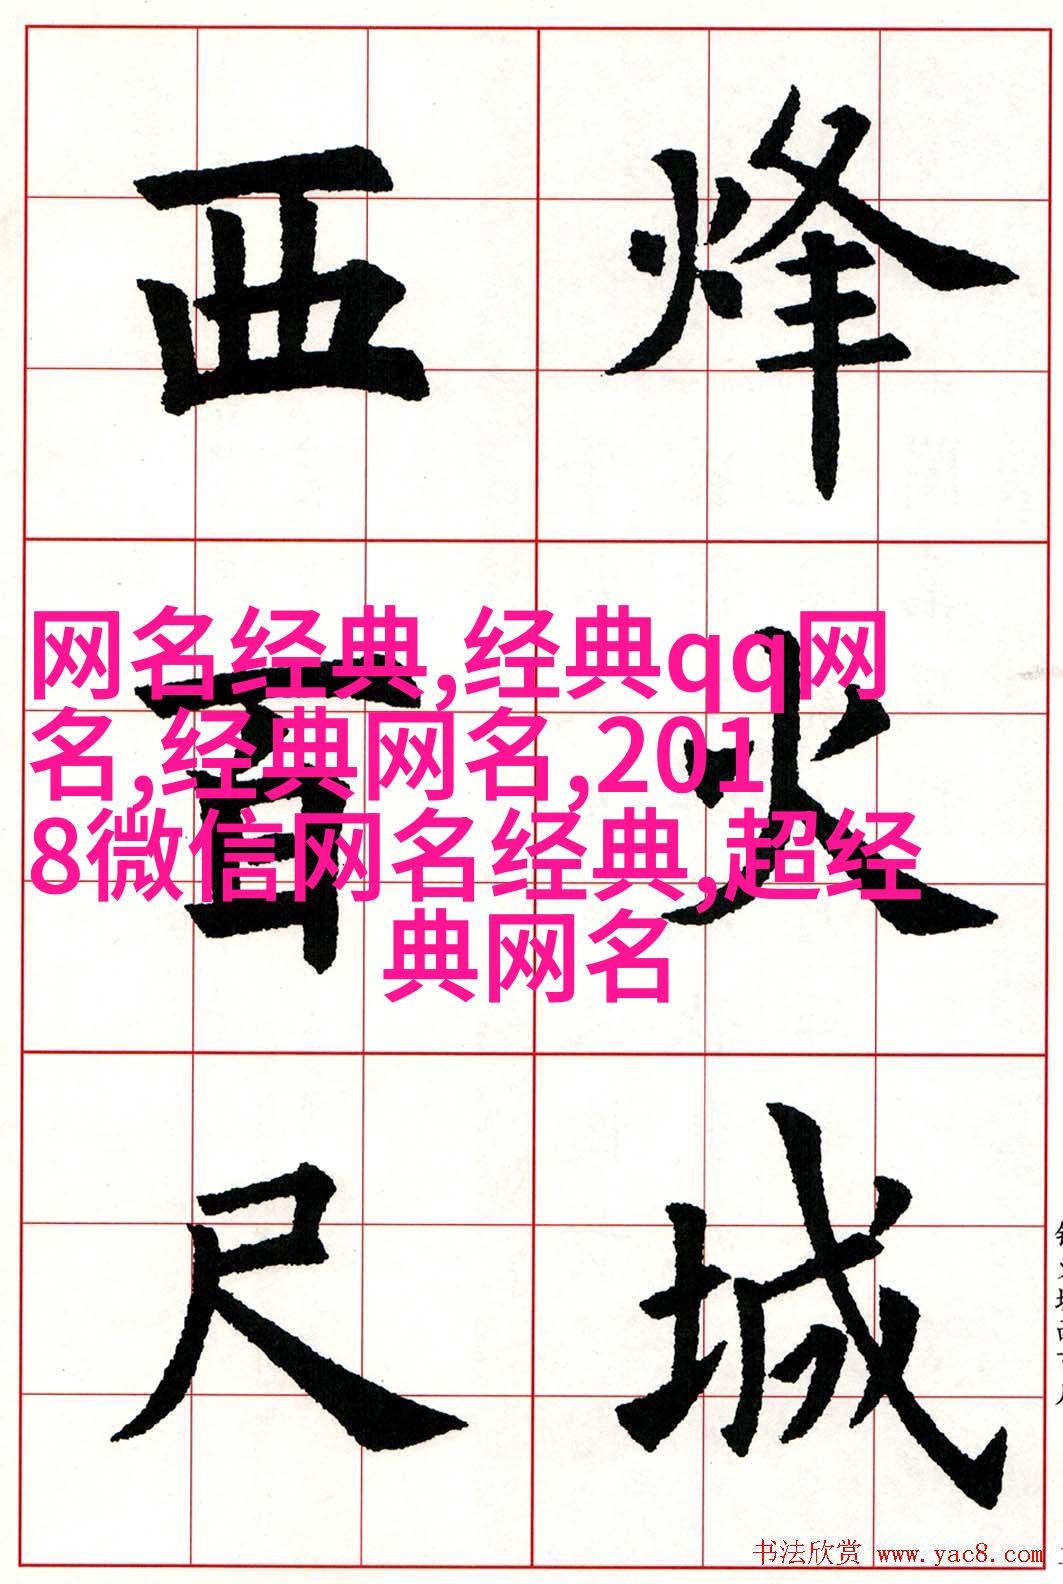 烽火城
西百尺
网名经典,经典qq网
名,经典网名,201
8微信网名经典,超经
典网名
书法欣赏 www.yac8.com